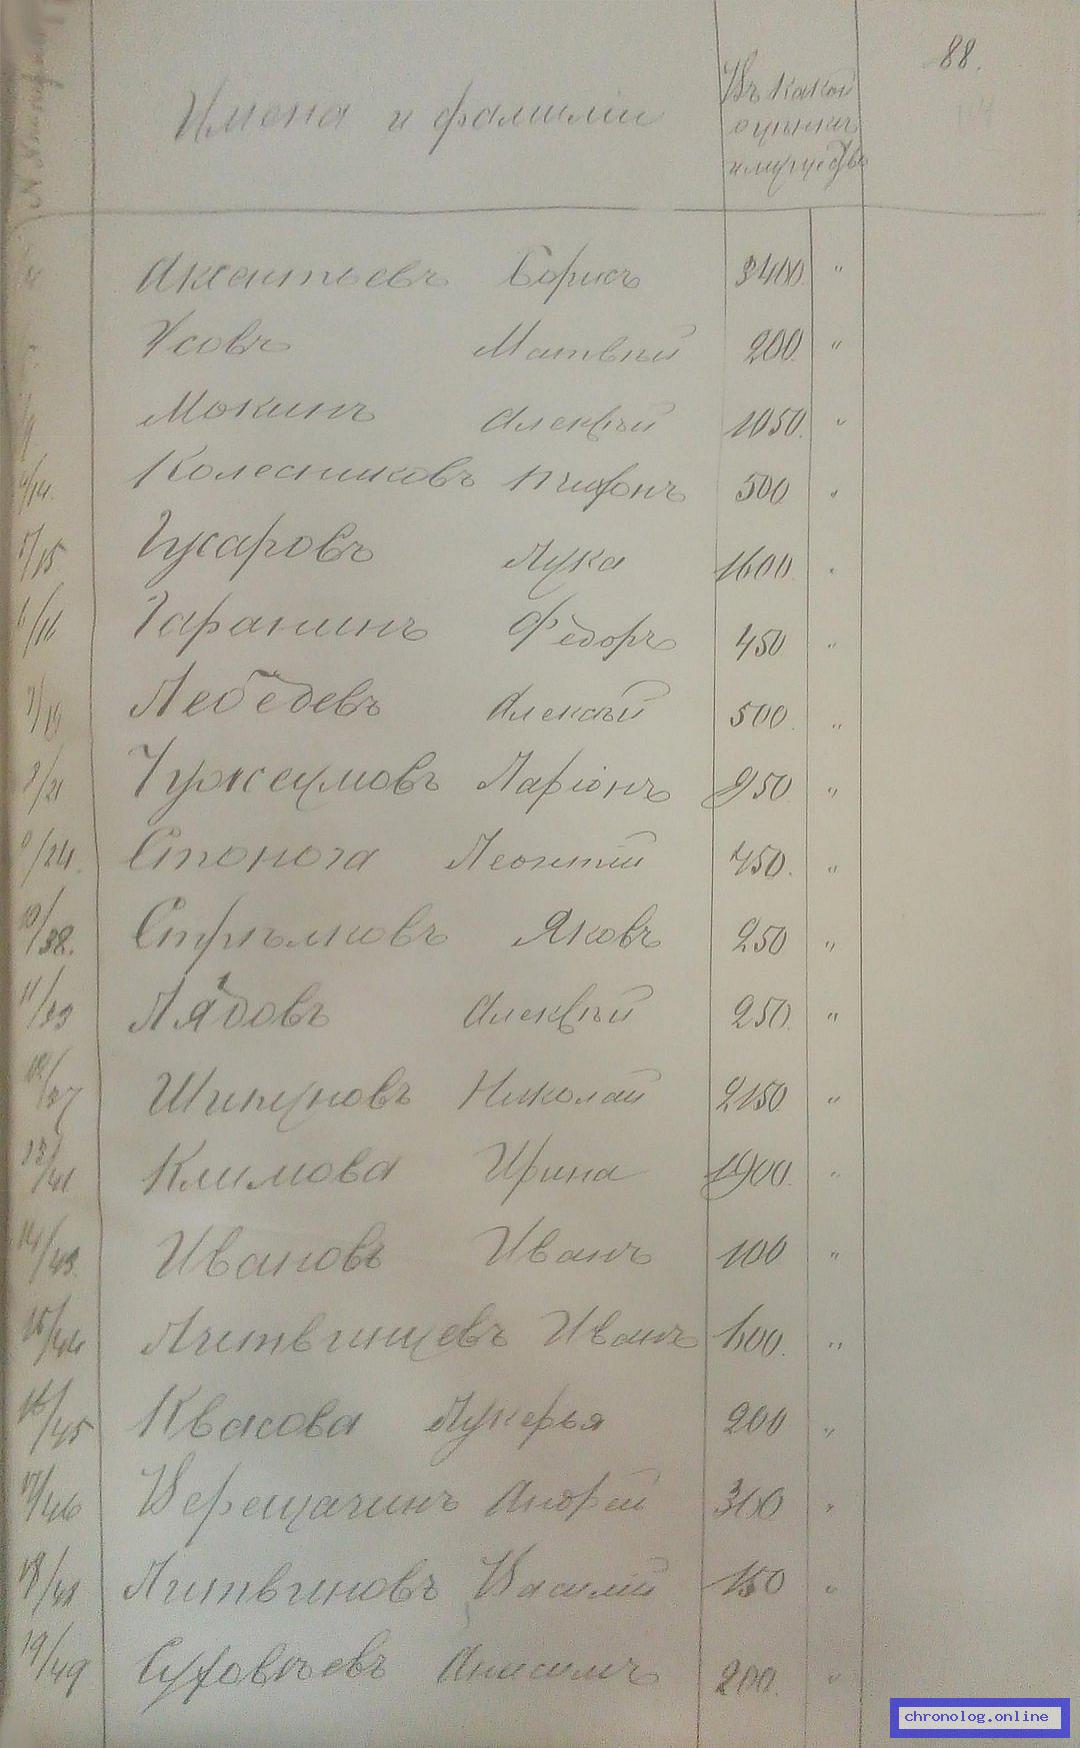 88.
Имена и фамиліи
Въ какой
оцѣнкѣ
имущество
Аксентьевъ Борисъ 3400 "
Усовъ Матвѣй 200 "
Мокинъ Алексѣй 1050 "
4/14. Колесниковъ Тифонъ 500 "
5/15 Гусаровъ Лука 1600 "
6/16 Гаранинъ Федоръ 450 "
7/19 Лебедевъ Алексѣй 500 "
8/21 Чужеумовъ Ларіонъ 950 "
9/24. Стонога Леонтій 750. "
10/32. Стрѣлковъ Яковъ 250 "
11/33 Лядовъ Алексѣй 250. "
12/37 Шипуновъ Николай 2150 "
13/41 Климова Ирина 1900. "
14/43. Ивановъ Иванъ 100 "
15/44 Литвинцевъ Иванъ 600. "
16/45 Квасова Лукерья 200 "
17/46 Верещагинъ Андрей 300 "
18/41 Литвиновъ Василій 150 "
19/49 Суховѣевъ Анисимъ 200. "
chronolog.online